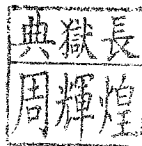 典獄長
周輝煌